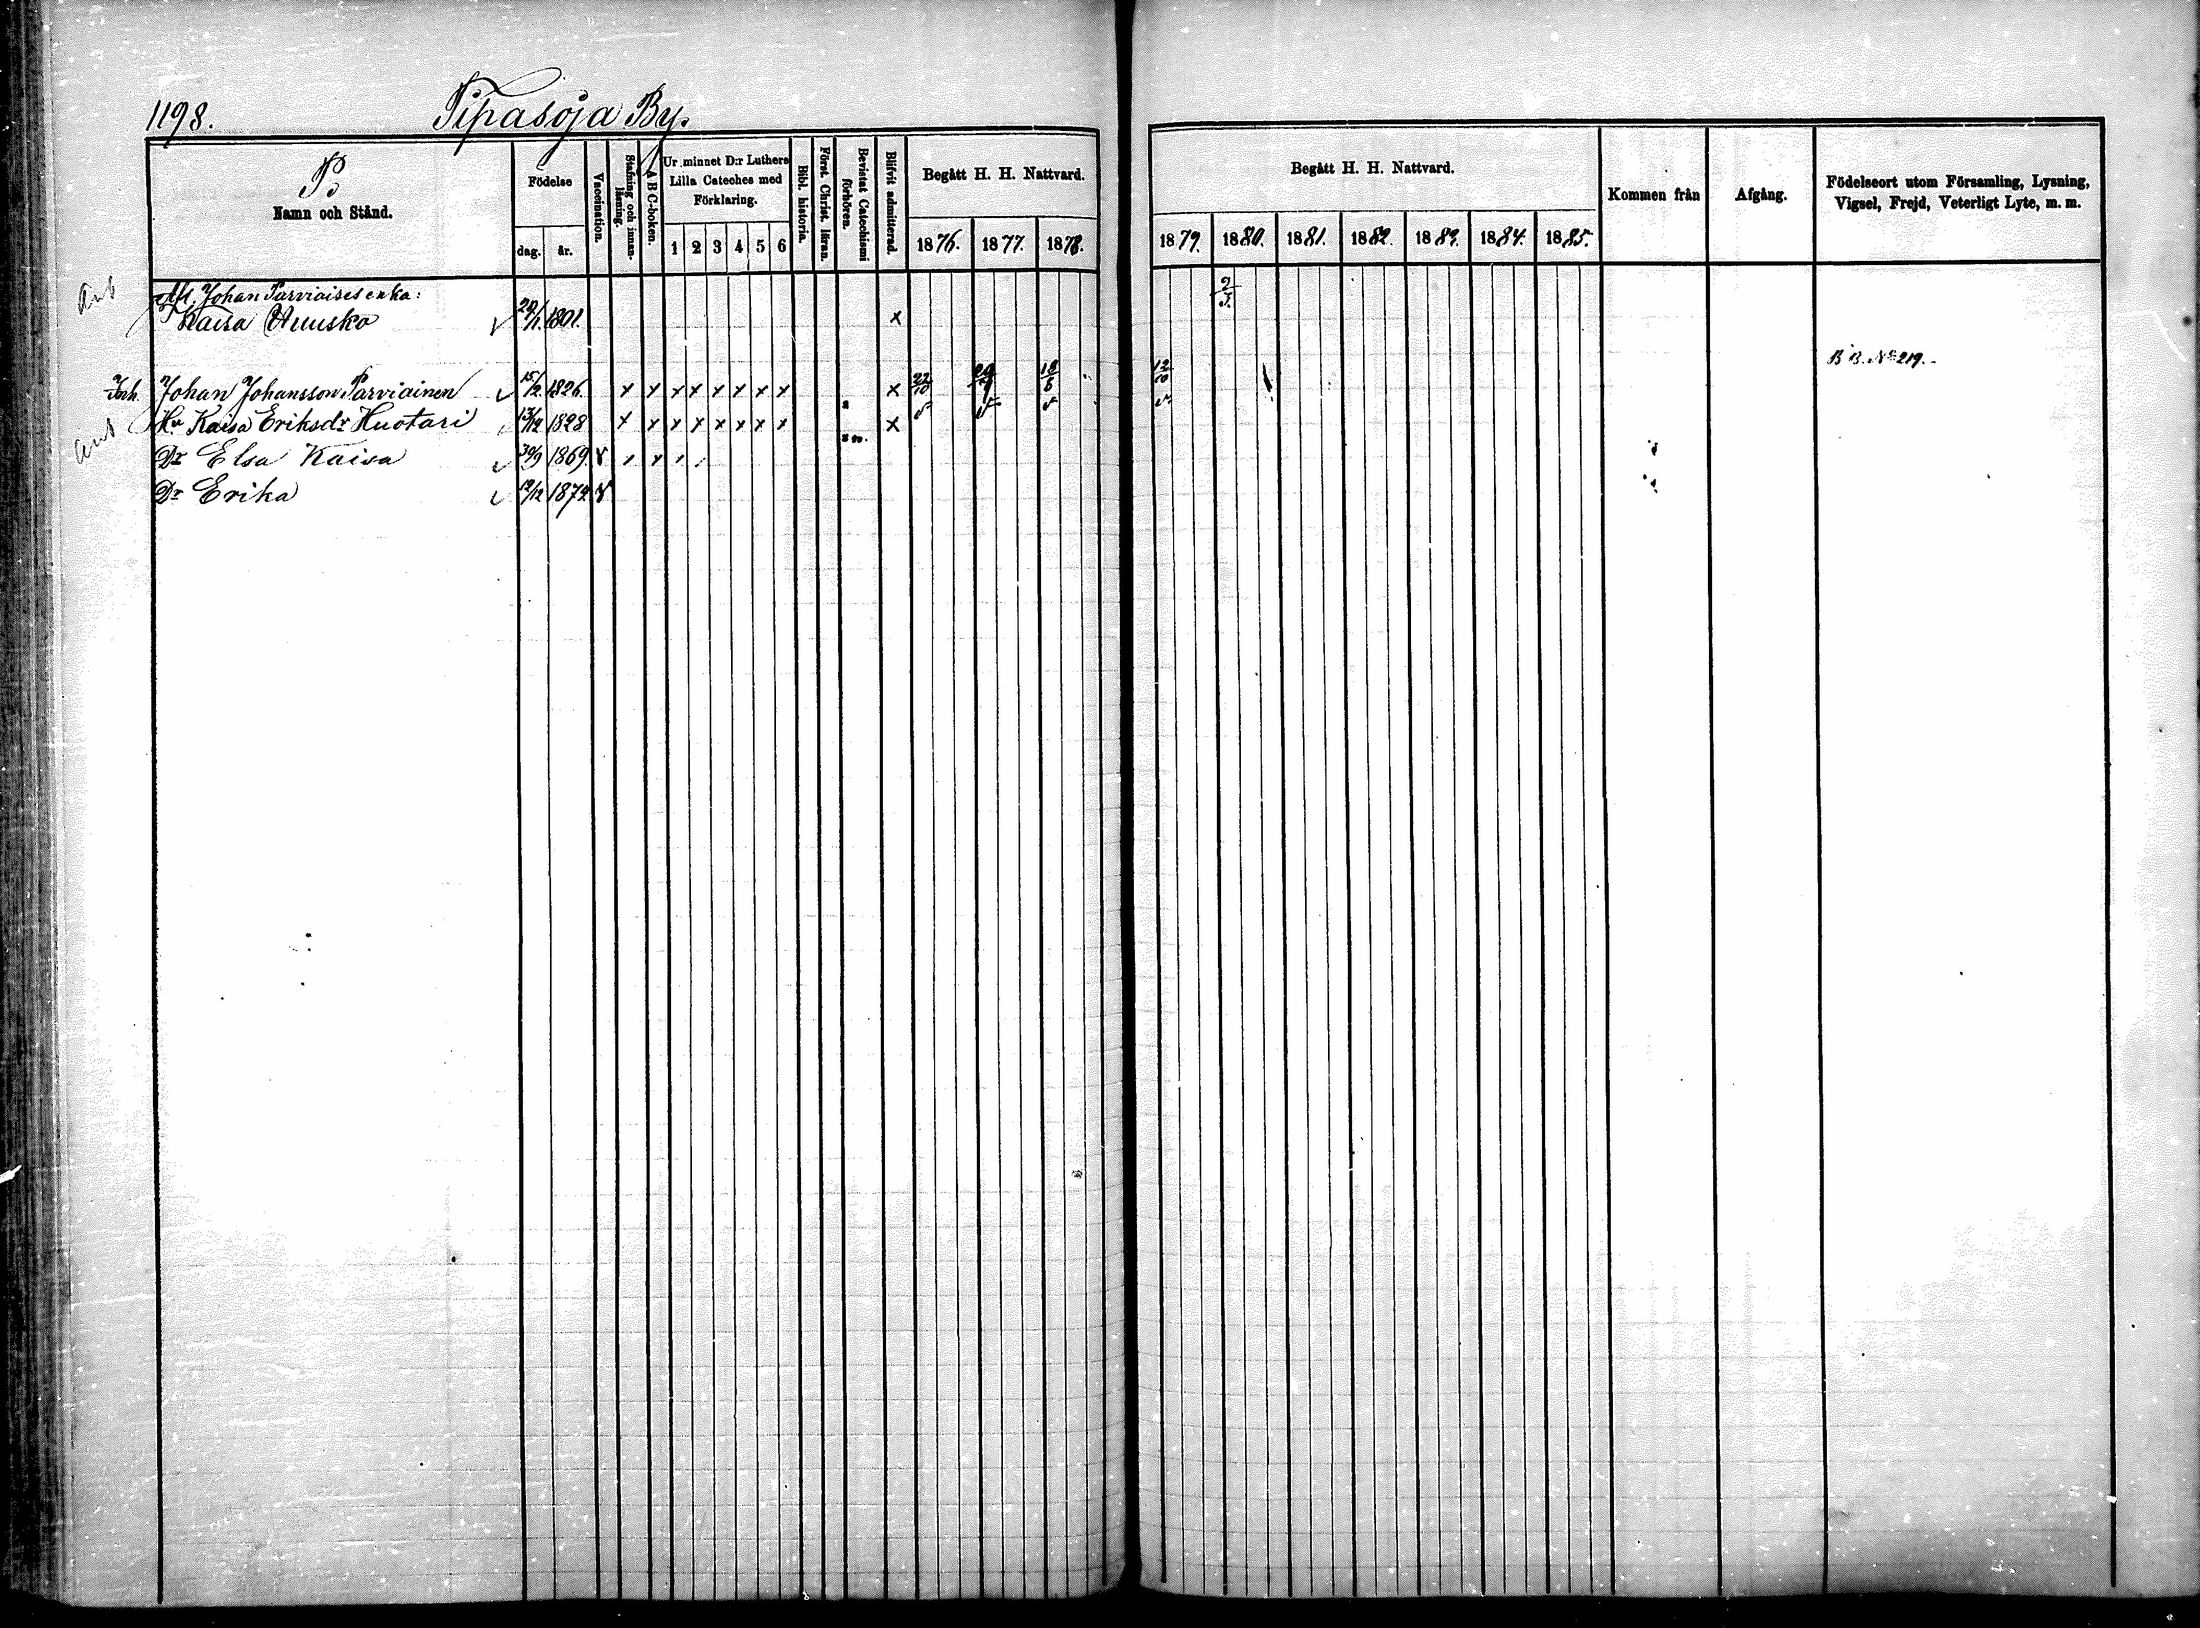 1198. Tipasoja By.
P.
Namn och Stånd.
Födelse
dag. år.
Vaccination.
Stafning och innanläsning.
A B C-boken.
Ur minnet D:r Luthers Lilla Cateches med Förklaring.
1 2 3 4 5 6
Bibl. historia.
Först. Christ. läran.
Bevistat Catechismi förhören.
Blifvit admitterad.
Begått H. H. Nattvard.
1876. 1877. 1878.
Begått H. H. Nattvard.
1879. 1880. 1881. 1882. 1883. 1884. 1885.
Kommen från
Afgång.
Födelseort utom Församling, Lysning, Vigsel, Frejd, Veterligt Lyte, m. m.
Afl. Johan Parviaises enka:
Kaisa Huusko 1801. x
B.B. No 219.
Joh. Johan Johansson Parviainen 15/2 1826 x x x x x x x x x 22/10 12/10
Hu Kaisa Eriksdr Huotari 13/12 1828 x x x x x x x x x
Dr Elsa Kaisa 30/9 1869 v
Dr Erika 12/12 1872 v